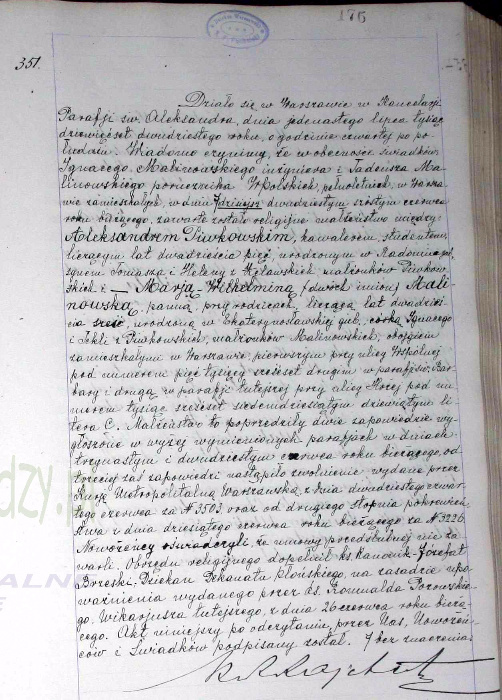 176
351.
Działo się w Warszawie w Kancelarji
Parafji św. Aleksandra, dnia jedenastego lipca tysiąc
dziewięćset dwudziestego roku, o godzinie czwartej po po-
łudniu. Wiadomo czynimy, że w obecności świadków
Ignacego Malinowskiego inżyniera i Tadeusza Ma-
linowskiego porucznika W. Polskich, pełnoletnich, w Warsza-
wie zamieszkałych, w dniu dwudziestym szóstym czerwca
roku bieżącego, zawarte zostało religijne małżeństwo między:
Aleksandrem Piwkowskim, kawalerem, studentem,
liczącym lat dwadzieścia pięć, urodzonym w Radomiu
synem Tomasza i Heleny z małżonków Piwkow-
skich i — Marją-Wilhelminą (dwóch imion) Mali-
nowską, panną przy rodzicach, liczącą lat dwadzieś-
cia sześć, urodzoną w Ekaterynosławskiej gub. córką Ignacego
i Tekli z małżonków Malinowskich, obojgiem
zamieszkałymi w Warszawie, pierwszym przy ulicy Wspólnej
pod numerem pięć tysięcy sześćset drugim w parafji św. Bar-
bary i drugą w parafji tutejszej przy ulicy Hożej pod nu-
merem tysiąc sześćset siedemdziesiątym dziewiątym li-
tera C. Małżeństwo to poprzedziły dwie zapowiedzie wy-
głoszone w wyżej wymienionych parafjach w dniach
trzynastym i dwudziestym czerwca roku bieżącego, od
trzeciej zaś zapowiedzi nastąpiło zwolnienie wydane przez
Kurję Metropolitalną Warszawską z dnia dwudziestego czwar-
tego czerwca za N 3503 oraz od drugiego stopnia pokrewień-
stwa z dnia dziesiątego czerwca roku bieżącego za N 3226.
Nowożeńcy oświadczyli, że umowy przedślubnej nie za-
warli. Obrzędu religijnego dopełnił ks. Kanonik Józefat
Breski, Dziekan Dekanatu Płońskiego, na zasadzie upo-
ważnienia wydanego przez ks. Romualda
go, Wikarjusza tutejszego, z dnia 26 czerwca roku bieżą-
cego. Akt niniejszy po odczytaniu, przez Nas, Nowożeń-
ców i Świadków podpisany został. bez znaczenia.